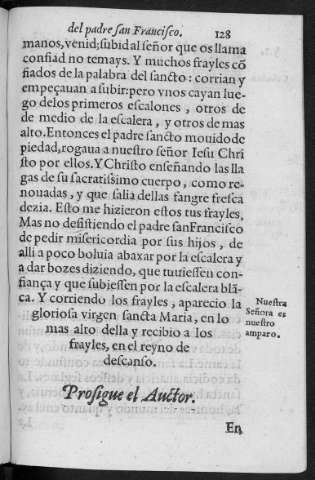 del padre san Francisco. 128
manos, venid; subid al señor que os llama
confiad no temays. Y muchos frayles cõ
fiados de la palabra del sancto: corrian y
empeçauan a subir: pero vnos cayan lue-
go de los primeros escalones, otros de
de medio de la escalera, y otros de mas
alto. Entonces el padre sancto mouido de
piedad, rogaua a nuestro señor Iesu Chri
sto por ellos. Y Christo enseñando las lla
gas de su sacratissimo cuerpo, como re-
nouadas, y que salia dellas sangre fresca
dezia. Esto me hizieron estos tus frayles.
Mas no desistiendo el padre san Francisco
de pedir misericordia por sus hijos, de
alli a poco boluia abaxar por la escalera y
a dar bozes diziendo, que tuuiessen con-
fiança y que subiessen por la escalera blã-
ca. Y corriendo los frayles, aparecio la
gloriosa virgen sancta Maria, en lo
mas alto della y recibio a los
frayles, en el reyno de
descanso.
Nuestra
Señora es
nuestro
amparo.
Prosigue el Auctor.
En